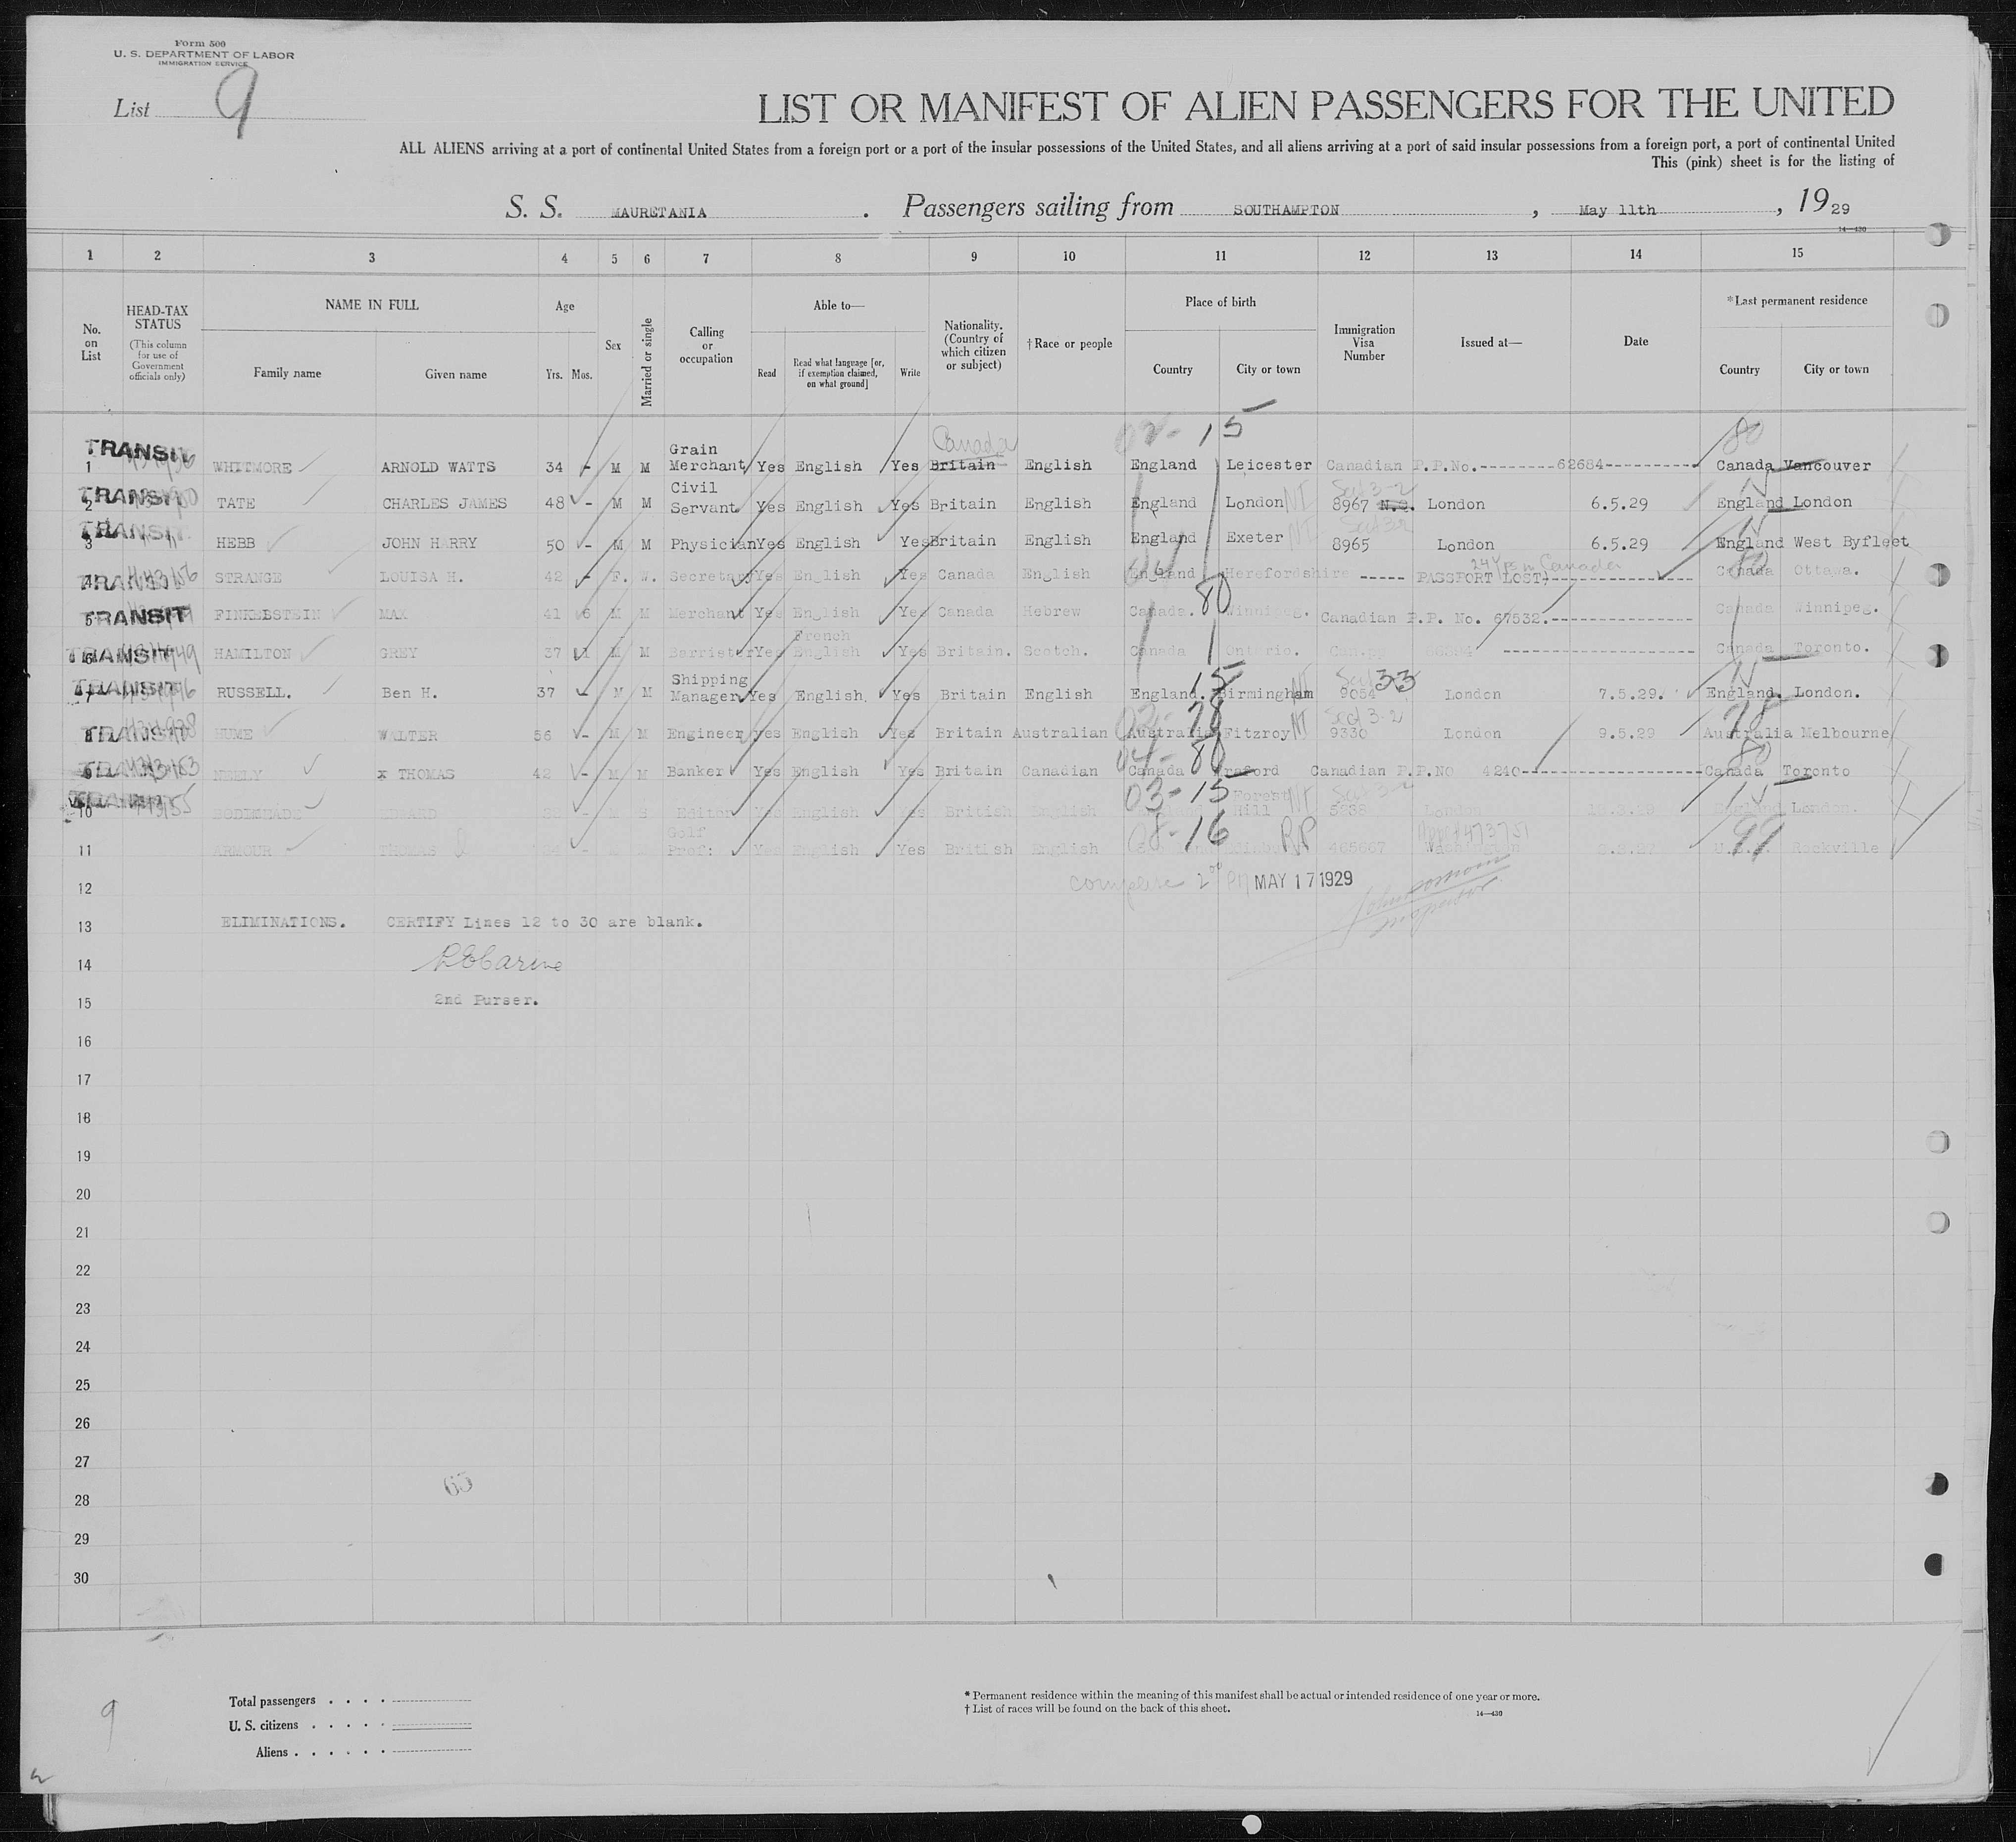 Form 500
U. S. DEPARTMENT OF LABOR
IMMIGRATION SERVICE
List 9
LIST OR MANIFEST OF ALIEN PASSENGERS FOR THE UNITED
ALL ALIENS arriving at a port of continental United States from a foreign port or a port of the insular possessions of the United States, and all aliens arriving at a port of said insular possessions from a foreign port, a port of continental United
This (pink) sheet is for the listing of
S. S. MAURETANIA . Passengers sailing from SOUTHAMPTON , May 11th , 1929
14—430
1 2 3 4 5 6 7 8 9 10 11 12 13 14 15
No. on List
HEAD-TAX STATUS (This column for use of Government officials only)
NAME IN FULL Family name Given name
Age Yrs. Mos.
Sex
Married or single
Calling or occupation
Able to— Read Read what language [or, if exemption claimed, on what ground] Write
Nationality. (Country of which citizen or subject)
†Race or people
Place of birth Country City or town
Immigration Visa Number
Issued at—
Date
*Last permanent residence Country City or town
02- 15 80
TRANSIT 1 WHITMORE ARNOLD WATTS 34 - M M Grain Merchant Yes English Yes Canada Britain English England Leicester Canadian P.P.No.--------62684---------- Canada Vancouver
TRANSIT 2 TATE CHARLES JAMES 48 - M M Civil Servant Yes English Yes Britain English England London NI Sect 3-2 8967 London 6.5.29 England London
TRANSIT 3 HEBB JOHN HARRY 50 - M M Physician Yes English Yes Britain English England Exeter NI Sect 3-2 8965 London 6.5.29 England West Byfleet
TRANSIT 4 STRANGE LOUISA H. 42 - F. W. Secretary Yes English Yes Canada English England Herefordshire ----- PASSPORT LOST) 24 yrs in Canada Canada Ottawa.
TRANSIT 5 FINKELSTEIN MAX 41 6 M M Merchant Yes English Yes Canada Hebrew Canada. 80 Winnipeg. Canadian P.P. No. 67532.---------------- Canada Winnipeg.
TRANSIT 6 HAMILTON GREY 37 11 M M Barrister Yes French English Yes Britain. Scotch. Canada Ontario. Can.pp -------------------- Canada Toronto.
TRANSIT 7 RUSSELL. Ben H. 37 - M M Shipping Manager Yes English. Yes Britain English England. 15 Birmingham NI 9054 London 7.5.29. England. London.
TRANSIT 8 HUME WALTER 56 - M M Engineer Yes English Yes Britain Australian Australia 78 Fitzroy NI Sect 3-2 9330 London 9.5.29 78 Australia Melbourne
TRANSIT 9 NEELY x THOMAS 42 - M M Banker Yes English Yes Britain Canadian Canada 80 Canadian P.P.NO 4240-------------------- 80 Canada Toronto
10 - M S Editor Yes English Yes British English 03-15 Forest Hill Sect 3-2 London England London.
11 ARMOUR THOMAS Golf Prof: Yes English Yes British English 08-16 465667 Washington 99 Rockville
12 MAY 17 1929
13 ELIMINATIONS. CERTIFY Lines 12 to 30 are blank.
14
15 2nd Purser.
16
17
18
19
20
21
22
23
24
25
26
27
28 65
29
30
9
Total passengers . . . .
U. S. citizens . . . . .
Aliens . . . . . .
* Permanent residence within the meaning of this manifest shall be actual or intended residence of one year or more.
† List of races will be found on the back of this sheet.
14—430